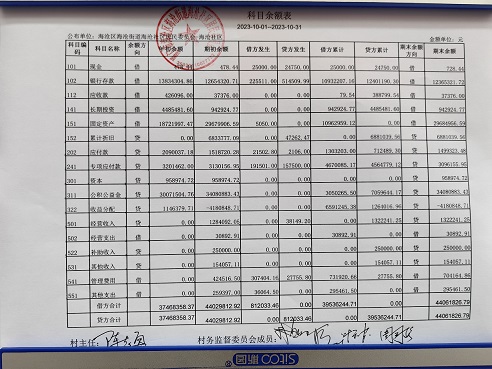 科目余额表
2023-10-01--2023-10-31
公布单位: 海沧区海沧街道海沧社区居民委员会-海沧社区 金额单位: 元
科目编码 科目名称 余额方向 年初余额 期初余额 借方发生 贷方发生 借方累计 贷方累计 期末余额方向 期末余额
101 现金 借 478.44 25000.00 24750.00 25000.00 24750.00 借 728.44
102 银行存款 借 13834304.86 12654320.71 225511.00 514509.99 10932207.16 12401190.30 借 12365321.72
112 应收款 借 426096.00 37376.00 0.00 0.00 79.54 388799.54 借 37376.00
141 长期投资 借 4485481.60 942924.77 0.00 0.00 942924.77 4485481.60 借 942924.77
151 固定资产 借 18721997.47 29679906.59 5050.00 0.00 10962959.12 0.00 借 29684956.59
152 累计折旧 贷 0.00 6833777.09 0.00 47262.47 0.00 6881039.56 贷 6881039.56
202 应付款 贷 2090037.18 1518720.28 21502.80 2106.00 1303203.00 712489.30 贷 1499323.48
241 专项应付款 贷 3201462.00 3130156.95 191501.00 157500.00 4670085.17 4564779.12 贷 3096155.95
301 资本 贷 958974.72 958974.72 0.00 0.00 0.00 0.00 贷 958974.72
311 公积公益金 贷 30071504.76 34080883.43 0.00 0.00 3050265.50 7059644.17 贷 34080883.43
322 收益分配 贷 1146379.71 -4180848.71 0.00 0.00 6591245.38 1264016.96 贷 -4180848.71
501 经营收入 贷 0.00 1284092.05 0.00 38149.20 0.00 1322241.25 贷 1322241.25
502 经营支出 借 0.00 30892.91 0.00 0.00 30892.91 0.00 借 30892.91
522 补助收入 贷 0.00 250000.00 0.00 0.00 0.00 250000.00 贷 250000.00
531 其他收入 贷 0.00 154057.11 0.00 0.00 0.00 154057.11 贷 154057.11
541 管理费用 借 0.00 424516.50 307404.16 27755.80 731920.66 27755.80 借 704164.86
551 其他支出 借 0.00 259397.00 36064.50 0.00 295461.50 0.00 借 295461.50
借方合计 37468358.37 44029812.92 812033.46 0.00 39536244.71 0.00 44061826.79
贷方合计 37468358.37 44029812.92 0.00 812033.46 0.00 39536244.71 44061826.79
村主任: 村务监督委员会成员:
SITOO